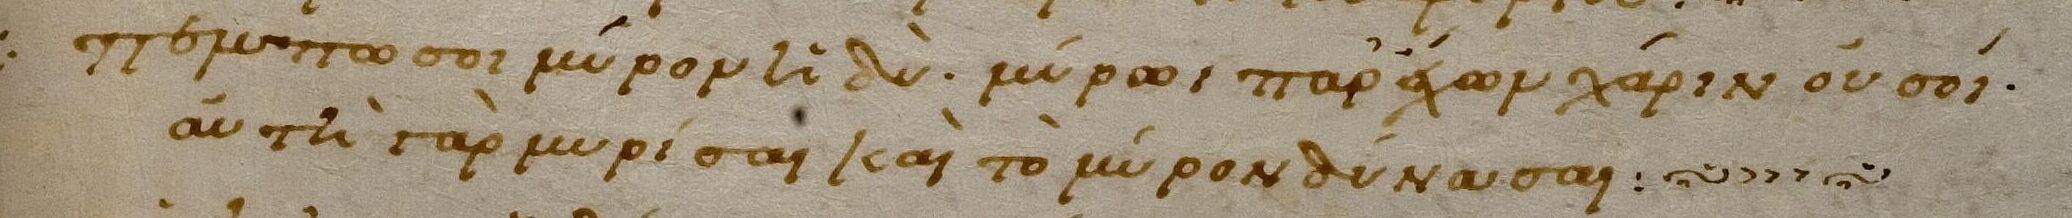 πέμπω σοι μύρον ἡδύ. μύρωι παρέχων χάριν οὐ σοί.
αὐτὴ γὰρ μυρίσαι καὶ τὸ μύρον δύνασαι: